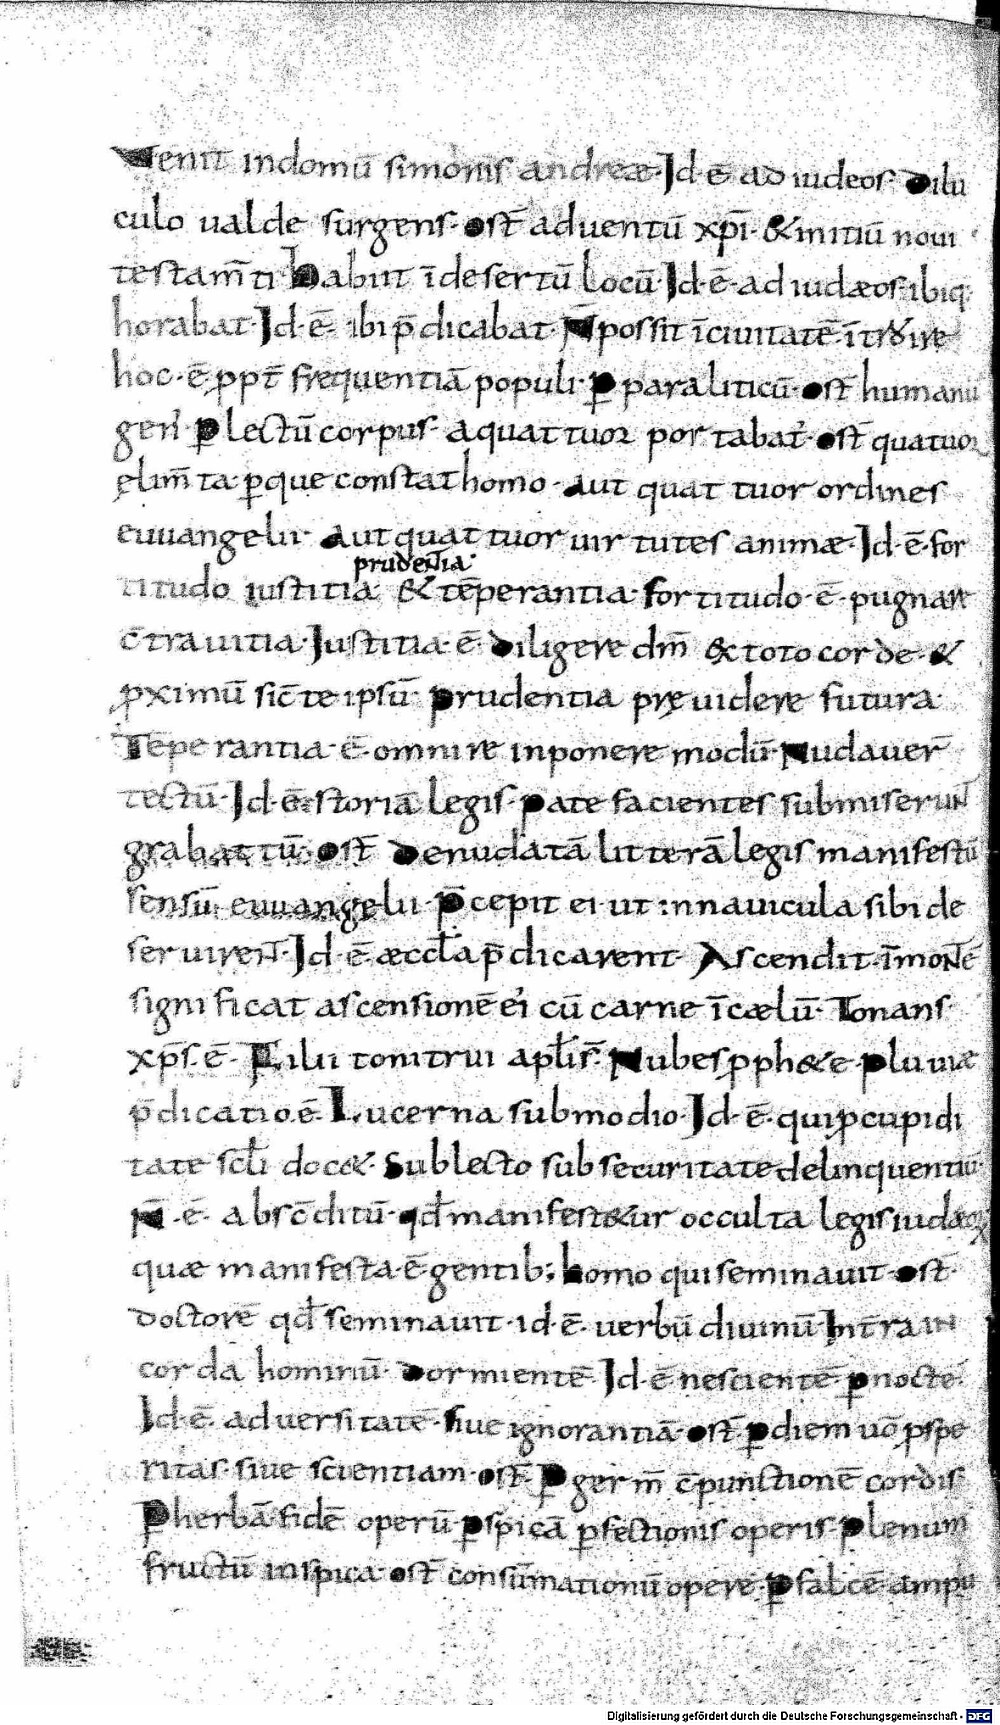 Venit indomū simonis andreæ· Id·ē· ad iudeos· Dilu
culo ualde surgens· ost̄ aduentū xp̄i· & initiū noui
testam̄ti habiit īdesertū locū· Id·ē· ad iudæos· ibiq;
horabat· Id·ē· ibi p̄dicabat· N̄ possit īciuitatē· īt
hoc·ē· ppt̄ frequentiā populi· P paraliticū· ost̄ humanū
gen̄ P lectū corpus· aquattuor portabat̄· ost̄ quatuor
ęlim̄ta· p̄que constat homo· aut quattuor ordines
euuangelii· aut quattuor uirtutes animæ· Id·ē· for
prudentia·
titudo iustitia· & tēperantia· fortitudo·ē· pugnare
c̄tra uitia· Iustitia·ē· diligere dm̄ & toto corde· &
pximū sic̄ te ipsū· prudentia pręuidere futura·
Tēperantia·ē· omni re inponere modū· Nudauer̄
tectū· Id·ē· storiā legis· patefacientes submiserunt̄
grabattū· ost̄ denudatā litterā legis manifestū
sensū euuangelii· p̄cepit ei ut innauicula sibi de
seruirent̄· Id·ē· æccl̄a p̄dicarent· Ascendit· īmontē
significat ascensionē ei' cū carne īcælū· Tonans
xp̄s·ē· Filii tonitrui apl̄is̄· Nubes pph&e· pluuiæ
p̄dicatio·ē· Lucerna submodio· Id·ē· qui p̄ cupidi
tate scl̄i doc&· Sublecto sub securitate delinquentiū·
N̄·ē· absc̄ditū· qd̄ manifest&ur occulta legis
quæ manifesta·ē gentib; homo qui seminauit· ost̄
doctorē qd̄ seminauit· id·ē· uerbū diuinū Int̄ra in
corda hominū· dormientē· Id·ē nescientē p noctē·
Id·ē· aduersitatē· siue ignorantiā· ost̄ p diem uō pspe
ritas· siue scientiam· ost̄· P germ̄ c̄punctionē cordis
P herbā· fidē operū· p spicā pfectionis operis· Plenum
fructū inspica· ost̄ consūmationū operē· P falcē· ampu
Digitalisierung gefördert durch die Deutsche Forschungsgemeinschaft - DFG